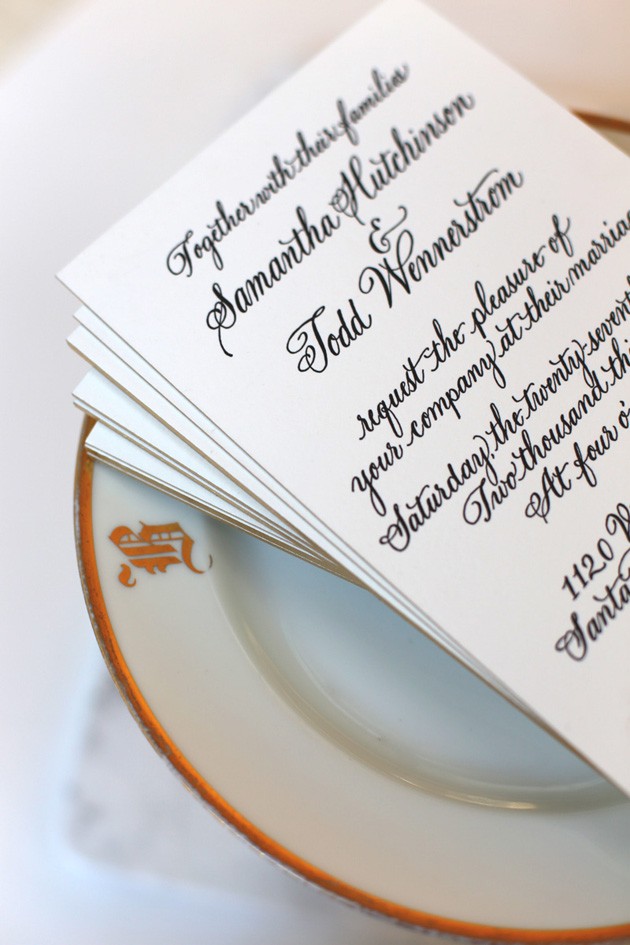 Together with their families
Samantha Hutchinson
&
Todd Wennerstrom
request the pleasure of
your company at their
Saturday, the twenty
Two thousand
At four
1120
Santa
B